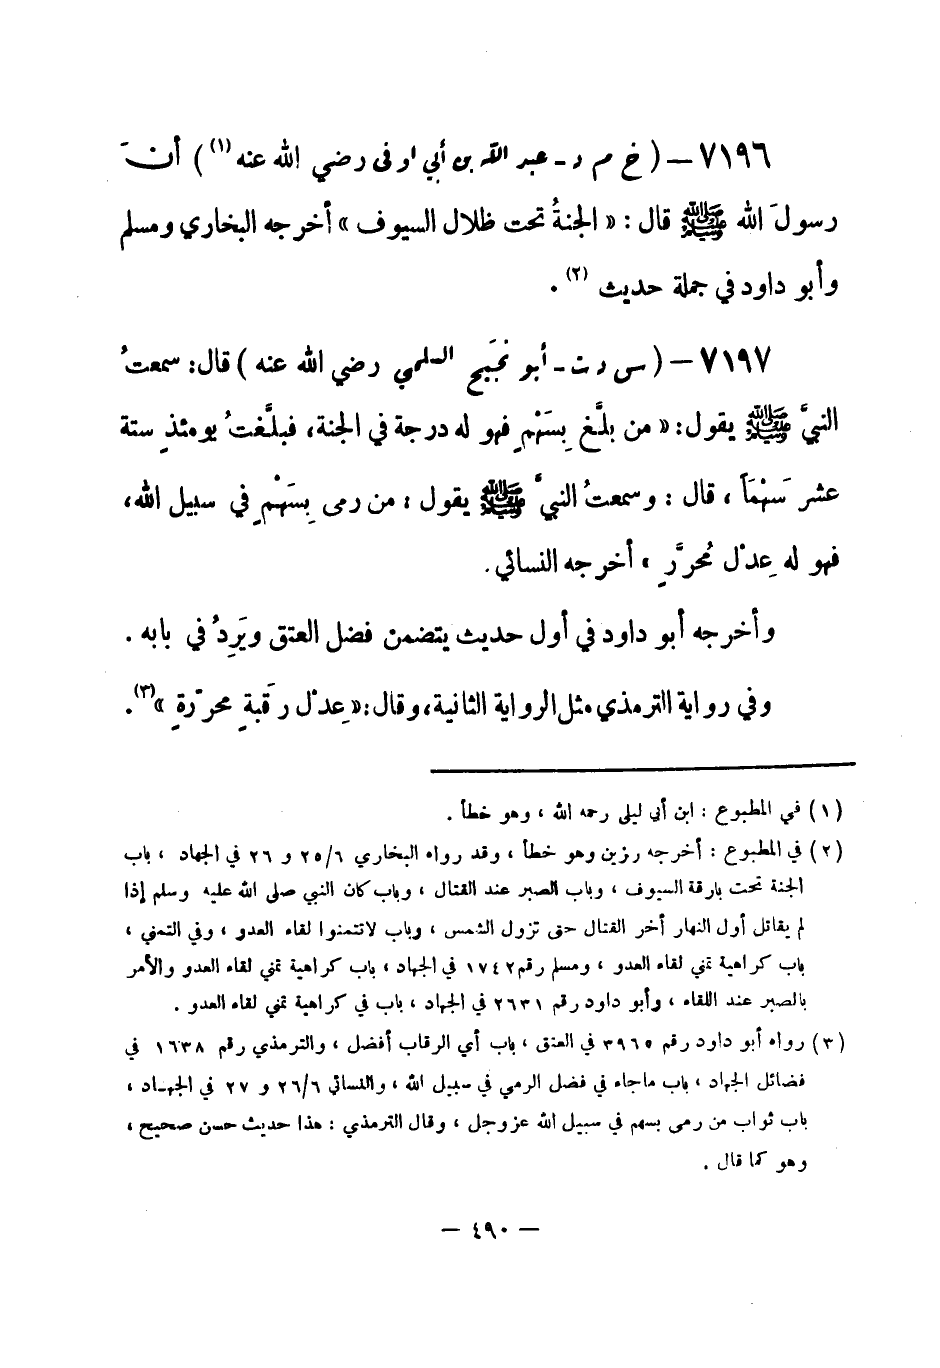 ٧١٩٦ – ( خ م د ـ عبد الله بن أبي اوفى رضي الله عنه (١) ) أنَّ
رسولَ الله ﷺ قال : « الجنةُ تحت ظلال السيوف » أخرجه البخاري ومسلم
وأبو داود في جملة حديث (٢) .
٧١٩٧ – ( س د ت ـ أبو نَجِيح السلمي رضي الله عنه ) قال : سمعتُ
النبيَّ ﷺ يقول : « من بلَّغ بِسَهْمٍ فهو له درجة في الجنة ، فبلَّغتُ يومئذٍ ستة
عشر سَهْمَاً ، قال : وسمعتُ النبيَّ ﷺ يقول : من رمى بِسَهْمٍ في سبيل الله ،
فهو له عِدْل مُحرَّرٍ » أخرجه النسائي .
وأخرجه أبو داود في أول حديث يتضمن فضل العتق ويَرِدُ في بابه .
وفي رواية الترمذي مثل الرواية الثانية ، وقال : « عِدْل رَقَبةٍ محرّرةٍ » (٣) .
(١) في المطبوع : ابن أبي ليلى رحمه الله ، وهو خطأ .
(٢) في المطبوع : أخرجه رزين وهو خطأ ، وقد رواه البخاري ٢٥/٦ و ٢٦ في الجهاد ، باب
الجنة تحت بارقة السيوف ، وباب الصبر عند القتال ، وباب كان النبي صلى الله عليه وسلم إذا
لم يقاتل أول النهار أخر القتال حتى تزول الشمس ، وباب لاتتمنوا لقاء العدو ، وفي التمني ،
باب كراهية تمني لقاء العدو ، ومسلم رقم ١٧٤٢ في الجهاد ، باب كراهية تمني لقاء العدو والأمر
بالصبر عند اللقاء ، وأبو داود رقم ٢٦٣١ في الجهاد ، باب في كراهية تمني لقاء العدو .
(٣) رواه أبو داود رقم ٣٩٦٥ في العتق ، باب أي الرقاب أفضل ، والترمذي رقم ١٦٣٨ في
فضائل الجهاد ، باب ماجاء في فضل الرمي في سبيل الله ، والنسائي ٢٦/٦ و ٢٧ في الجهاد ،
باب ثواب من رمى بسهم في سبيل الله عز وجل ، وقال الترمذي : هذا حديث حسن صحيح ،
وهو كما قال .
– ٤٩٠ –